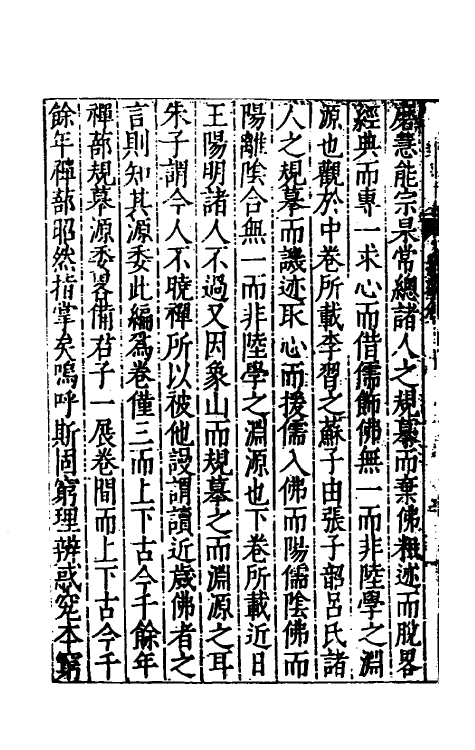 磨慧能宗杲常總諸人之規摹而棄佛粗迹而脫畧
經典而專一求心而借儒飾佛無一而非陸學之淵
源也觀於中卷所載李習之蘇子由張子韶呂氏諸
人之規摹而譏迹取心而援儒入佛而陽儒陰佛而
陽離陰合無一而非陸學之淵源也下卷所載近日
王陽明諸人不過又因象山而規摹之而淵源之耳
朱子謂今人不曉禪所以被他謾謂讀近歲佛者之
言則知其源委此編爲卷僅三而上下古今千餘年
禪部規摹源委畧備君子一展卷間而上下古今千
餘年禪部昭然指掌矣嗚呼斯固窮理辨惑究本窮